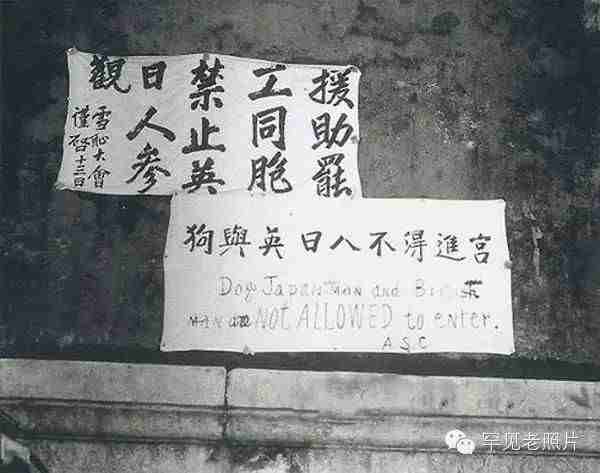 援助罷
工同胞
禁止英
日人參
觀
雪恥大會
謹啓十三日
狗與英日人不得進宮
Dog Japan MAN and
MAN NOT ALLOWED to enter.
A S C
罕见老照片